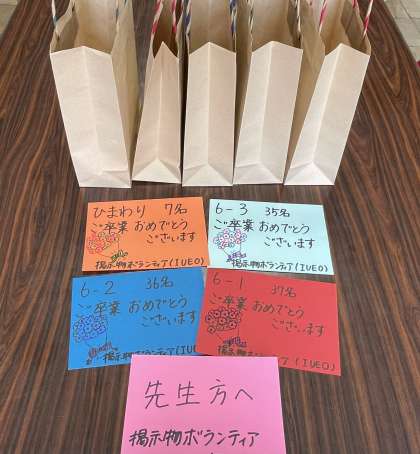 ひまわり 7名
ご卒業おめでとう
ございます
掲示物ボランティア(IUEO)
6-3 35名
ご卒業おめでとう
ございます
掲示物ボランティア(IUEO)
6-2 36名
ご卒業おめでとう
ございます
掲示物ボランティア(IUEO)
6-1 37名
ご卒業おめでとう
ございます
掲示物ボランティア(IUEO)
先生方へ
掲示物ボランティア